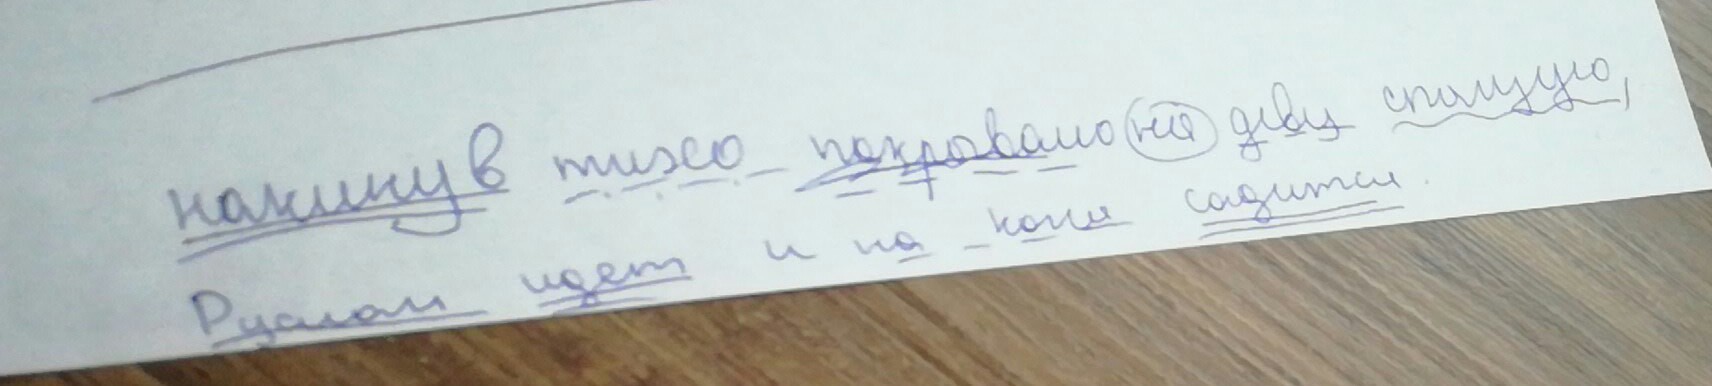 накинув тихо покровало на деву спящую,
Руслан идет и на коня садится.